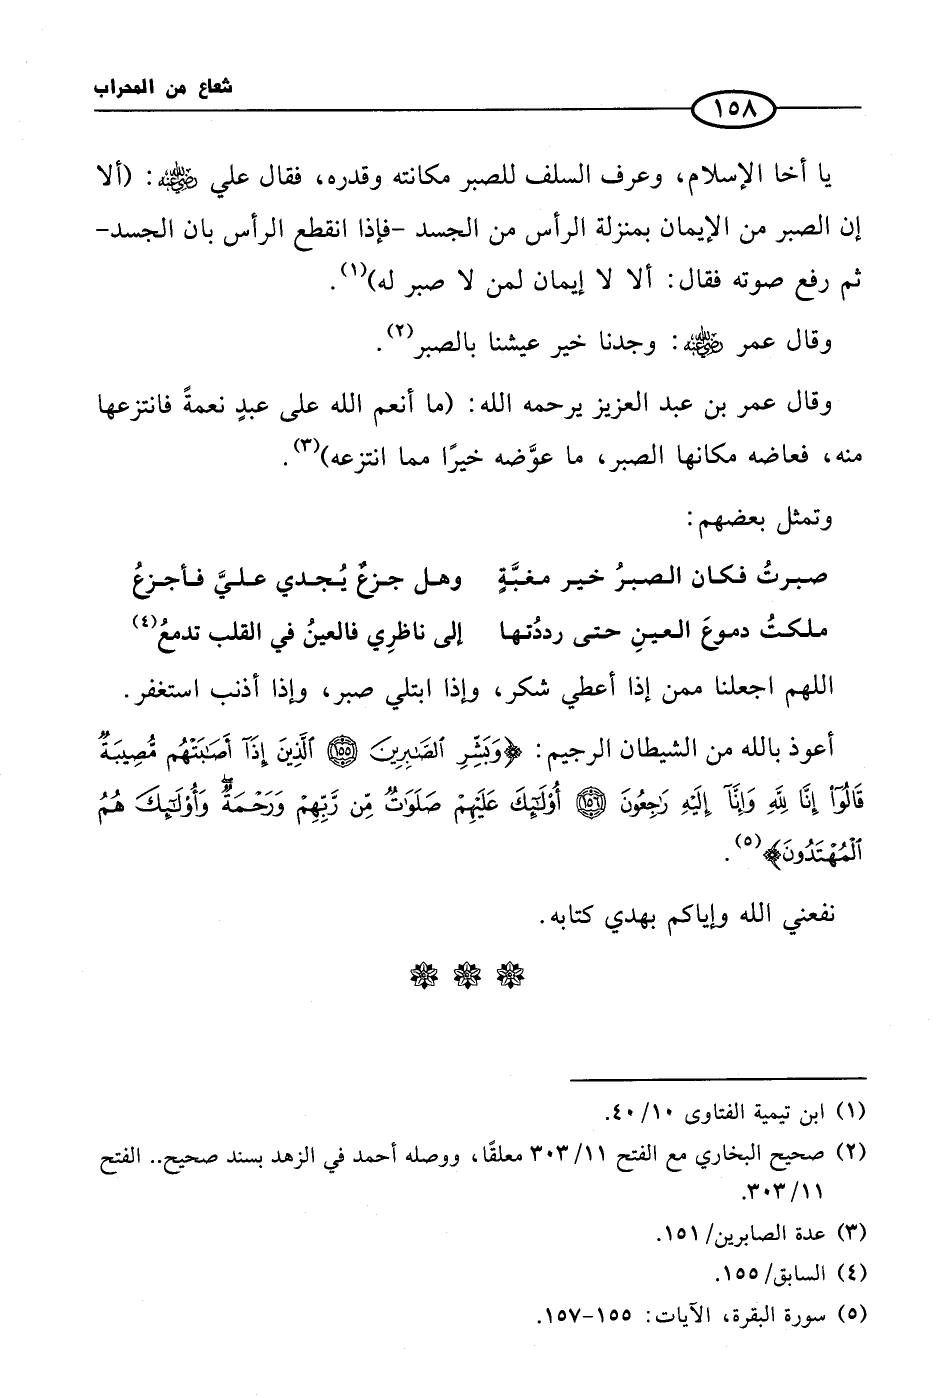 شعاع من المحراب
١٥٨
يا أخا الإسلام، وعرف السلف للصبر مكانته وقدره، فقال علي رضي الله عنه: (ألا
إن الصبر من الإيمان بمنزلة الرأس من الجسد -فإذا انقطع الرأس بان الجسد-
ثم رفع صوته فقال: ألا لا إيمان لمن لا صبر له)(١).
وقال عمر رضي الله عنه: وجدنا خير عيشنا بالصبر(٢).
وقال عمر بن عبد العزيز يرحمه الله: (ما أنعم الله على عبدٍ نعمةً فانتزعها
منه، فعاضه مكانها الصبر، ما عوَّضه خيرًا مما انتزعه)(٣).
وتمثل بعضهم:
صبرتُ فكان الصبرُ خير مغبَّةٍ وهل جزعٌ يُجدي عليَّ فأجزعُ
ملكتُ دموعَ العينِ حتى رددُتها إلى ناظرِي فالعينُ في القلب تدمعُ(٤)
اللهم اجعلنا ممن إذا أعطي شكر، وإذا ابتلي صبر، وإذا أذنب استغفر.
أعوذ بالله من الشيطان الرجيم: ﴿وَبَشِّرِ ٱلصَّٰبِرِينَ ١٥٥ ٱلَّذِينَ إِذَآ أَصَٰبَتْهُم مُّصِيبَةٌ
قَالُوٓاْ إِنَّا لِلَّهِ وَإِنَّآ إِلَيْهِ رَٰجِعُونَ ١٥٦ أُوْلَٰٓئِكَ عَلَيْهِمْ صَلَوَٰتٌ مِّن رَّبِّهِمْ وَرَحْمَةٌۖ وَأُوْلَٰٓئِكَ هُمُ
ٱلْمُهْتَدُونَ﴾(٥).
نفعني الله وإياكم بهدي كتابه.
(١) ابن تيمية الفتاوى ١٠/ ٤٠.
(٢) صحيح البخاري مع الفتح ١١/ ٣٠٣ معلقًا، ووصله أحمد في الزهد بسند صحيح.. الفتح
١١/ ٣٠٣.
(٣) عدة الصابرين/ ١٥١.
(٤) السابق/ ١٥٥.
(٥) سورة البقرة، الآيات: ١٥٥-١٥٧.